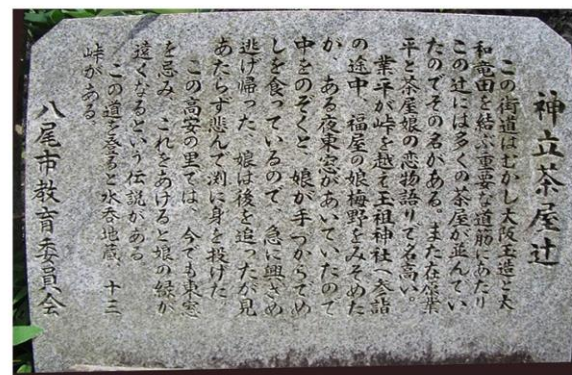 神立茶屋辻
この街道はむかし大阪玉造と大
和竜田を結ぶ重要な道筋にあたり
この辻には多くの茶屋が並んでい
たのでその名がある。また在原業
平と茶屋娘の恋物語りで名高い。
業平が峠を越え玉祖神社へ参詣
の途中、福屋の娘梅野をみそめた
が、ある夜東窓があいていたので
中をのぞくと、娘が手づからでめ
しを食っているので、急に興ざめ
逃げ帰った、娘は後を追ったが見
あたらず悲んで渕に身を投げた
この高安の里では、今でも東窓
を忌み、これをあけると娘の縁が
遠くなるという伝説がある
この道を登ると水呑地蔵、十三
峠がある。
八尾市教育委員会